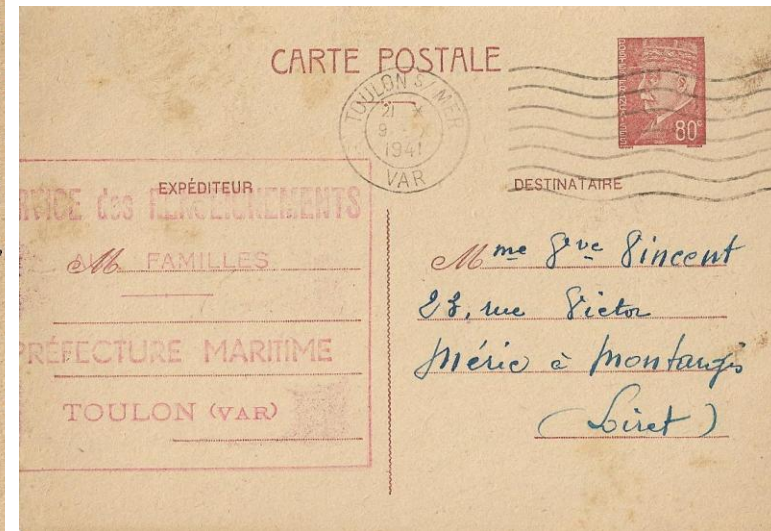 CARTE POSTALE
TOULON S/MER
21 X
9
1941
VAR
80c
EXPÉDITEUR
RVICE des RENSEIGNEMENTS
M
AUX FAMILLES
PRÉFECTURE MARITIME
TOULON (VAR)
DESTINATAIRE
Mme Vve Vincent
23, rue Victor
Méric à Montargis
(Loiret)